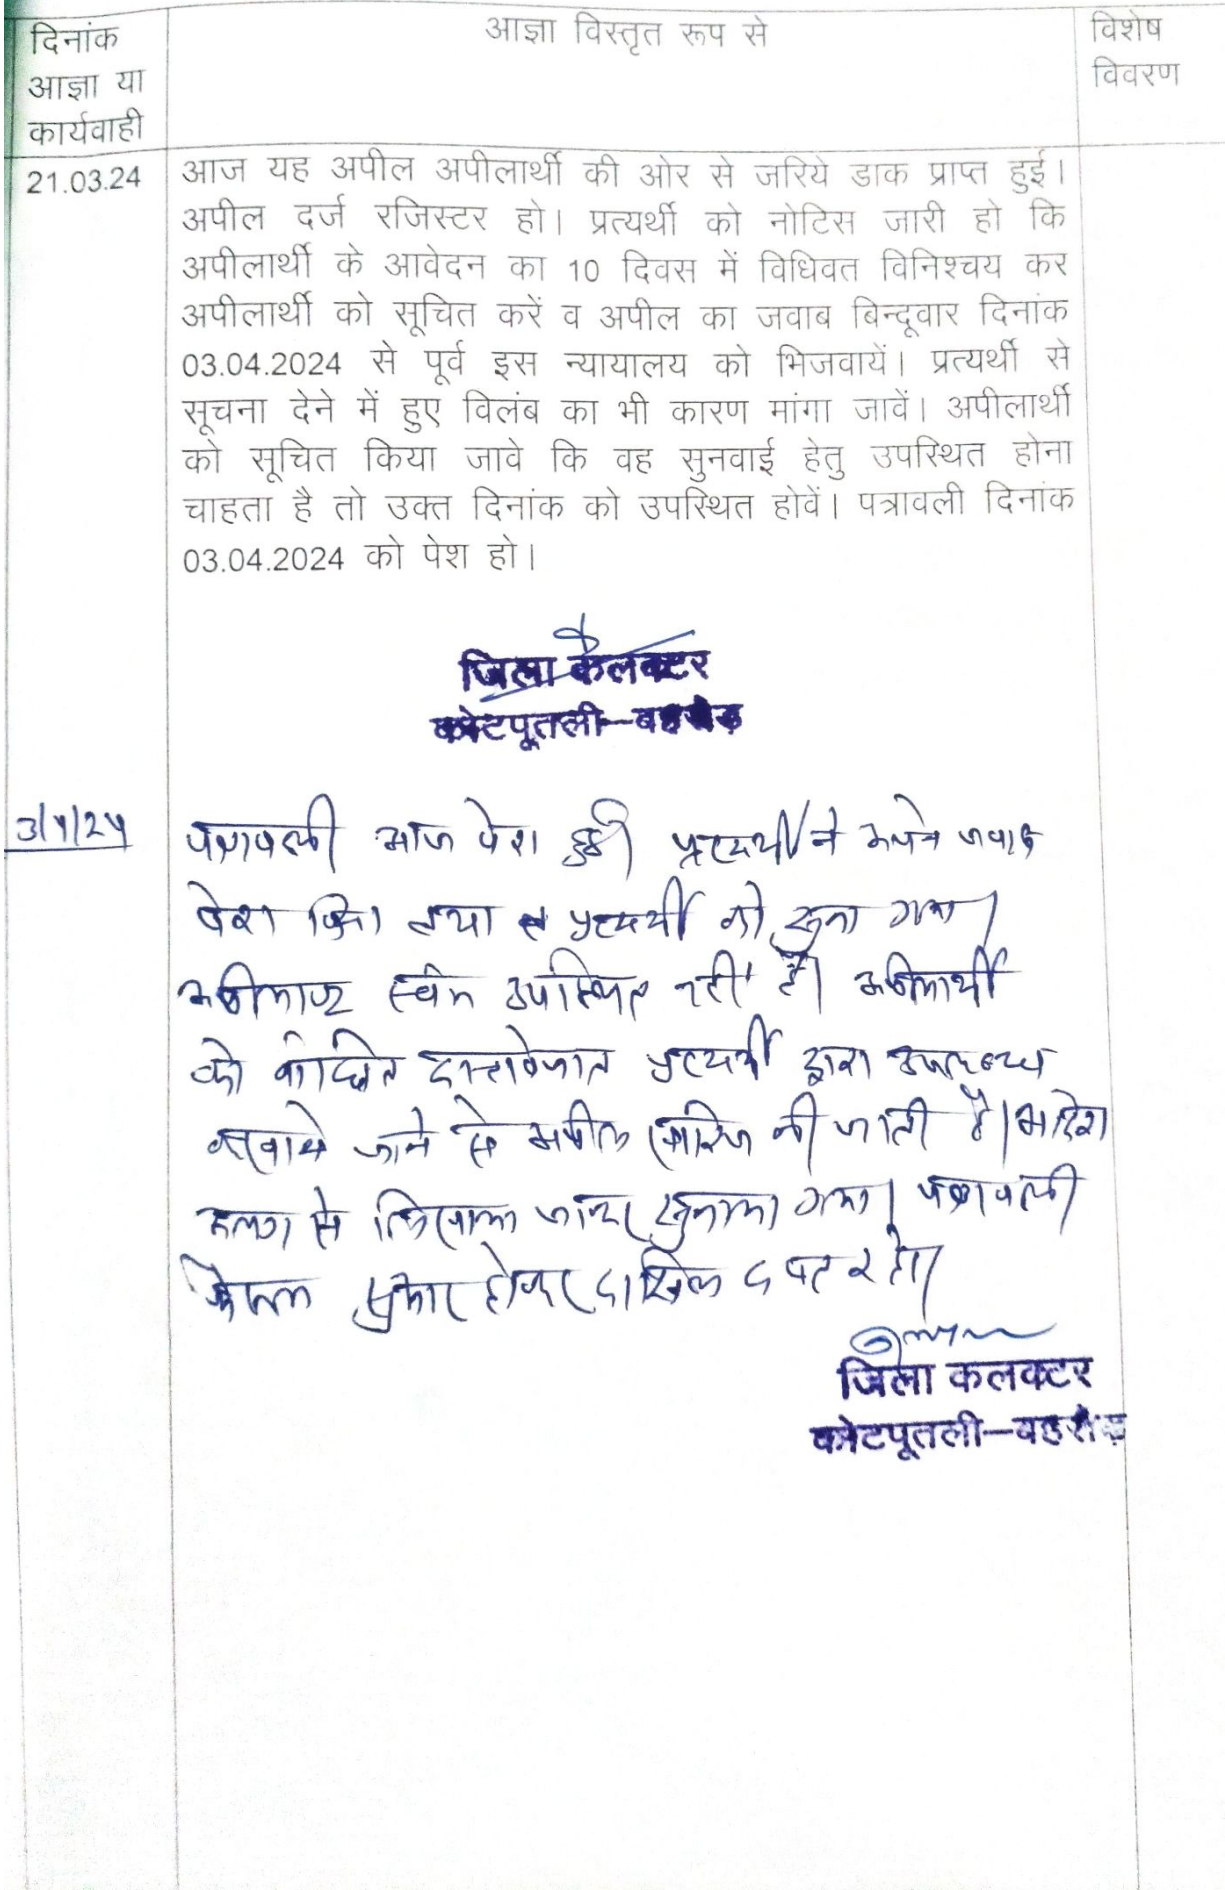 दिनांक
आज्ञा या
कार्यवाही
आज्ञा विस्तृत रूप से
विशेष
विवरण
21.03.24
आज यह अपील अपीलार्थी की ओर से जरिये डाक प्राप्त हुई।
अपील दर्ज रजिस्टर हो। प्रत्यर्थी को नोटिस जारी हो कि
अपीलार्थी के आवेदन का 10 दिवस में विधिवत विनिश्चय कर
अपीलार्थी को सूचित करें व अपील का जवाब बिन्दूवार दिनांक
03.04.2024 से पूर्व इस न्यायालय को भिजवायें। प्रत्यर्थी से
सूचना देने में हुए विलंब का भी कारण मांगा जावें। अपीलार्थी
को सूचित किया जावे कि वह सुनवाई हेतु उपस्थित होना
चाहता है तो उक्त दिनांक को उपस्थित होवें। पत्रावली दिनांक
03.04.2024 को पेश हो।
जिला कलक्टर
कोटपूतली–बहरोड़
3/4/24
पत्रावली आज पेश हुई। प्रत्यर्थी ने अपने जवाब
पेश किया तथा प्रत्यर्थी को सुना गया।
उपस्थित नहीं है। अपीलार्थी
को वांछित दस्तावेजात प्रत्यर्थी द्वारा उपलब्ध
करवाये जाने से अपील खारिज की जाती है। आदेश
अलग से लिखाया जाकर सुनाया गया। पत्रावली
फैसल शुमार होकर दाखिल दफ्तर हो।
जिला कलक्टर
कोटपूतली–बहरोड़